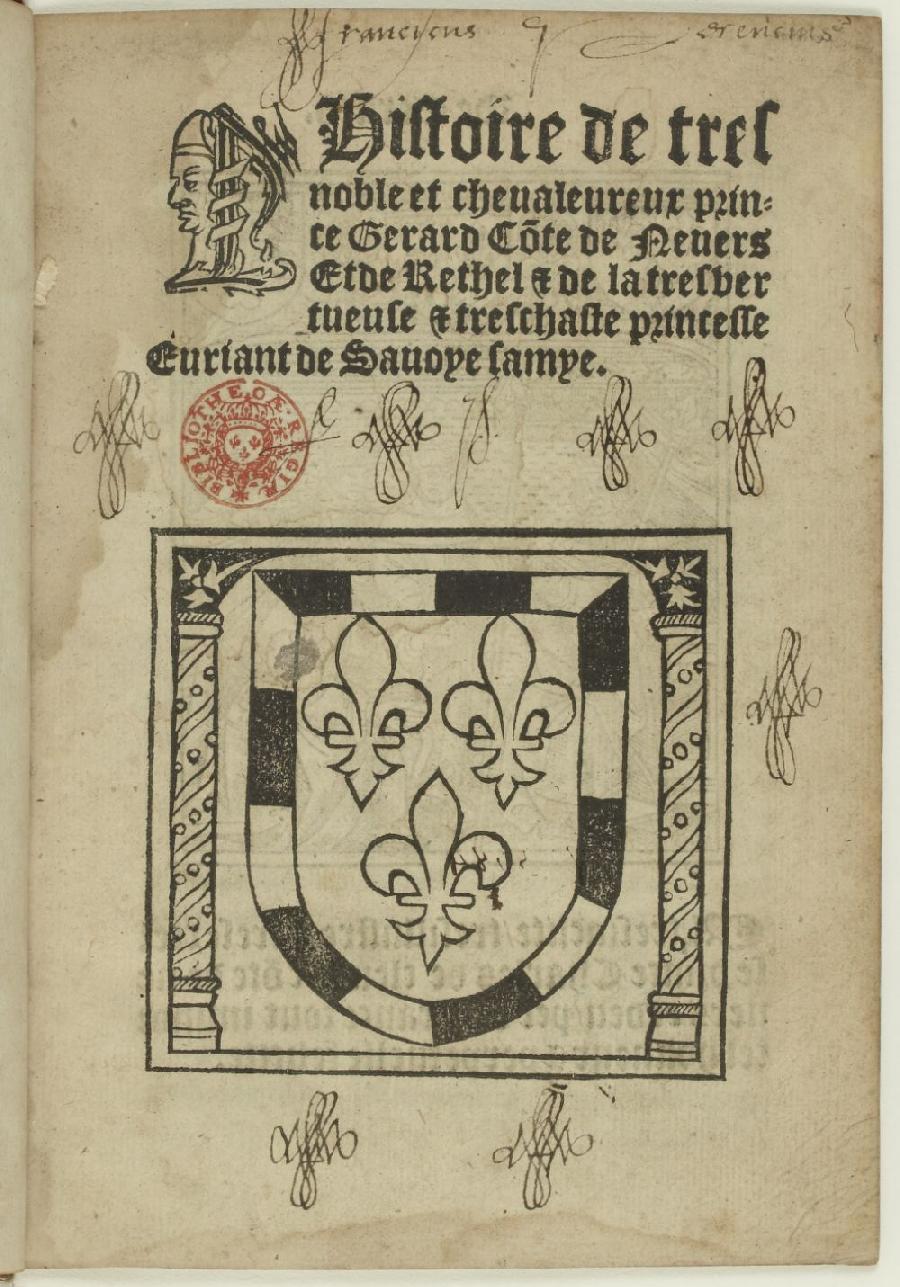 Franciscus
LHistoire de tres
noble et cheualeureux prin-
ce Gerard Cōte de Neuers
Et de Rethel & de la tresver
tueuse & treschaste princesse
Euriant de Sauoye samye.
BIBLIOTHECÆ REGIÆ